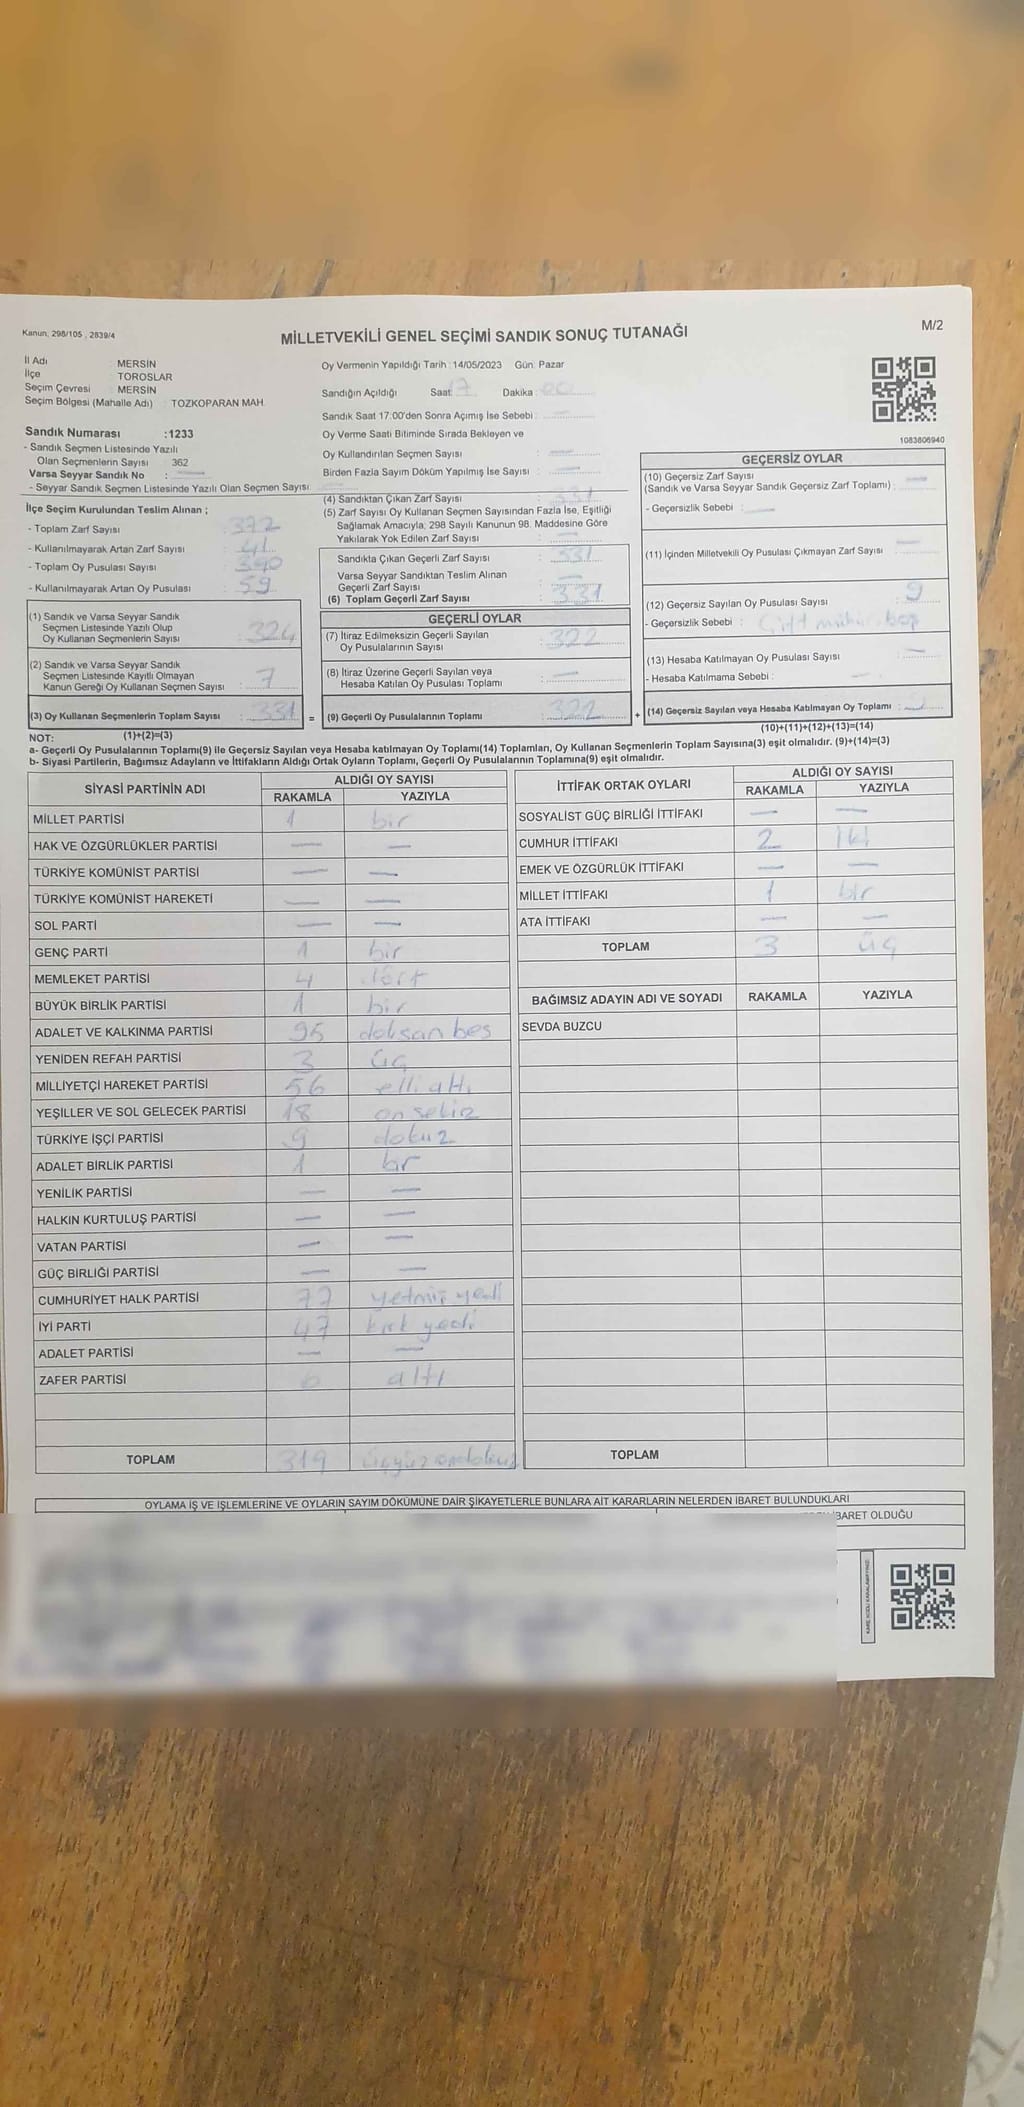 Kanun, 298/105 , 2839/4
MİLLETVEKİLİ GENEL SEÇİMİ SANDIK SONUÇ TUTANAĞI
M/2
İl Adı : MERSİN
İlçe : TOROSLAR
Seçim Çevresi : MERSİN
Seçim Bölgesi (Mahalle Adı) : TOZKOPARAN MAH.
Sandık Numarası :1233
- Sandık Seçmen Listesinde Yazılı
Olan Seçmenlerin Sayısı : 362
Varsa Seyyar Sandık No : —
- Seyyar Sandık Seçmen Listesinde Yazılı Olan Seçmen Sayısı:
İlçe Seçim Kurulundan Teslim Alınan ;
- Toplam Zarf Sayısı : 372
- Kullanılmayarak Artan Zarf Sayısı : 41
- Toplam Oy Pusulası Sayısı : 390
- Kullanılmayarak Artan Oy Pusulası : 59
(1) Sandık ve Varsa Seyyar Sandık
Seçmen Listesinde Yazılı Olup
Oy Kullanan Seçmenlerin Sayısı : 324
(2) Sandık ve Varsa Seyyar Sandık
Seçmen Listesinde Kayıtlı Olmayan
Kanun Gereği Oy Kullanan Seçmen Sayısı : 7
(3) Oy Kullanan Seçmenlerin Toplam Sayısı : 331 =
(1)+(2)=(3)
Oy Vermenin Yapıldığı Tarih : 14/05/2023 Gün: Pazar
Sandığın Açıldığı Saat: 17 Dakika : 00
Sandık Saat 17:00'den Sonra Açımış İse Sebebi : —
Oy Verme Saati Bitiminde Sırada Bekleyen ve
Oy Kullandırılan Seçmen Sayısı : —
Birden Fazla Sayım Döküm Yapılmış İse Sayısı : —
(4) Sandıktan Çıkan Zarf Sayısı : 331
(5) Zarf Sayısı Oy Kullanan Seçmen Sayısından Fazla İse, Eşitliği
Sağlamak Amacıyla, 298 Sayılı Kanunun 98. Maddesine Göre
Yakılarak Yok Edilen Zarf Sayısı : —
Sandıkta Çıkan Geçerli Zarf Sayısı : 331
Varsa Seyyar Sandıktan Teslim Alınan
Geçerli Zarf Sayısı : —
(6) Toplam Geçerli Zarf Sayısı : 331
GEÇERLİ OYLAR
(7) İtiraz Edilmeksizin Geçerli Sayılan
Oy Pusulalarının Sayısı : 322
(8) İtiraz Üzerine Geçerli Sayılan veya
Hesaba Katılan Oy Pusulası Toplamı : —
(9) Geçerli Oy Pusulalarının Toplamı : 322 +
1083806940
GEÇERSİZ OYLAR
(10) Geçersiz Zarf Sayısı
(Sandık ve Varsa Seyyar Sandık Geçersiz Zarf Toplamı) : —
- Geçersizlik Sebebi : —
(11) İçinden Milletvekili Oy Pusulası Çıkmayan Zarf Sayısı : —
(12) Geçersiz Sayılan Oy Pusulası Sayısı : 9
- Geçersizlik Sebebi : Çift mühür, boş
(13) Hesaba Katılmayan Oy Pusulası Sayısı : —
- Hesaba Katılmama Sebebi : —
(14) Geçersiz Sayılan veya Hesaba Katılmayan Oy Toplamı :
(10)+(11)+(12)+(13)=(14)
NOT:
a- Geçerli Oy Pusulalarının Toplamı(9) ile Geçersiz Sayılan veya Hesaba katılmayan Oy Toplamı(14) Toplamları, Oy Kullanan Seçmenlerin Toplam Sayısına(3) eşit olmalıdır. (9)+(14)=(3)
b- Siyasi Partilerin, Bağımsız Adayların ve İttifakların Aldığı Ortak Oyların Toplamı, Geçerli Oy Pusulalarının Toplamına(9) eşit olmalıdır.
SİYASİ PARTİNİN ADI ALDIĞI OY SAYISI
RAKAMLA YAZIYLA
MİLLET PARTİSİ 1 bir
HAK VE ÖZGÜRLÜKLER PARTİSİ — —
TÜRKİYE KOMÜNİST PARTİSİ — —
TÜRKİYE KOMÜNİST HAREKETİ — —
SOL PARTİ — —
GENÇ PARTİ 1 bir
MEMLEKET PARTİSİ 4 dört
BÜYÜK BİRLİK PARTİSİ 1 bir
ADALET VE KALKINMA PARTİSİ 95 doksan beş
YENİDEN REFAH PARTİSİ 3 üç
MİLLİYETÇİ HAREKET PARTİSİ 56 elli altı
YEŞİLLER VE SOL GELECEK PARTİSİ 18 on sekiz
TÜRKİYE İŞÇİ PARTİSİ 9 dokuz
ADALET BİRLİK PARTİSİ 1 bir
YENİLİK PARTİSİ — —
HALKIN KURTULUŞ PARTİSİ — —
VATAN PARTİSİ — —
GÜÇ BİRLİĞİ PARTİSİ — —
CUMHURİYET HALK PARTİSİ 77 yetmiş yedi
İYİ PARTİ 47 kırk yedi
ADALET PARTİSİ — —
ZAFER PARTİSİ 6 altı
TOPLAM 319 üçyüz ondokuz
İTTİFAK ORTAK OYLARI ALDIĞI OY SAYISI
RAKAMLA YAZIYLA
SOSYALİST GÜÇ BİRLİĞİ İTTİFAKI — —
CUMHUR İTTİFAKI 2 iki
EMEK VE ÖZGÜRLÜK İTTİFAKI — —
MİLLET İTTİFAKI 1 bir
ATA İTTİFAKI — —
TOPLAM 3 üç
BAĞIMSIZ ADAYIN ADI VE SOYADI RAKAMLA YAZIYLA
SEVDA BUZCU
TOPLAM
OYLAMA İŞ VE İŞLEMLERİNE VE OYLARIN SAYIM DÖKÜMÜNE DAİR ŞİKAYETLERLE BUNLARA AİT KARARLARIN NELERDEN İBARET BULUNDUKLARI
İBARET OLDUĞU